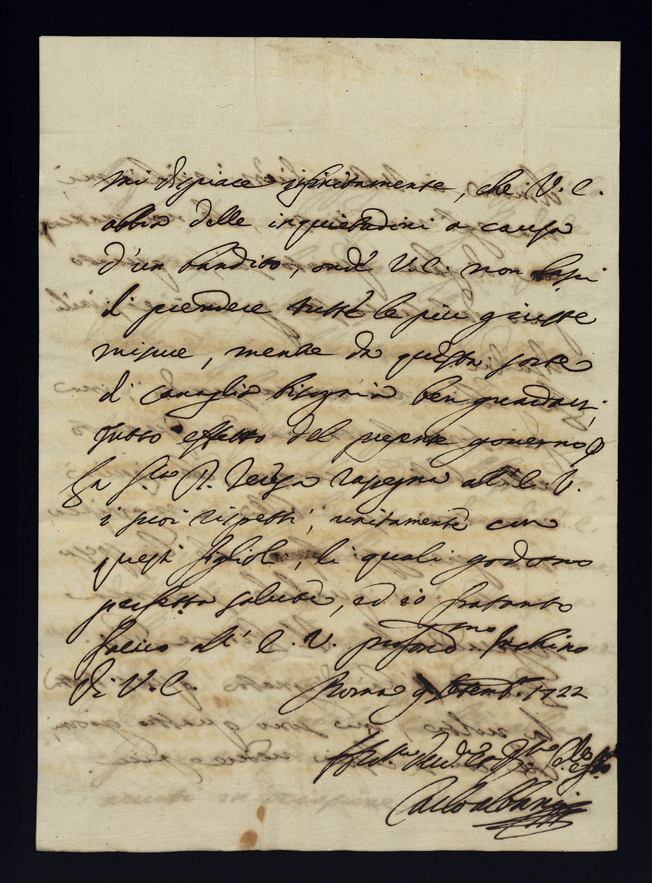 mi dispiace infinitamente, che V. E.
abbia delle inquietudini a causa
d'un bandito, ond'è V.E. non lasci
di prendere tutte le più giuste
misure, mentre da questa sorte
di canaglia bisogna ben guardarsi,
tutto effetto del presente governo
La Sig.ra D. Teresa rassegna all'E. V.
i suoi rispetti, unitamente con
questi figlioli, li quali godono
perfetta salute, ed io frattanto
faccio all' E. V. profond.mo inchino
Di V. E. Roma 9 Settemb.e 1722
Carlo Albani